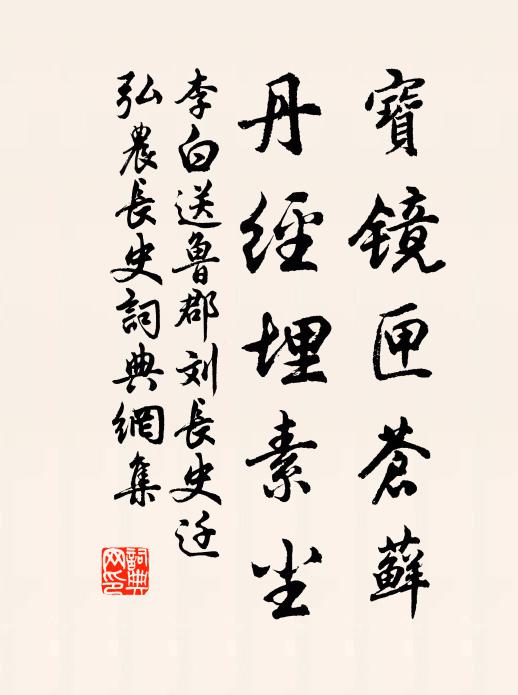 寶鏡匣蒼蘚
丹經埋素尘
李白送魯郡刘長史迁
弘農長史詞典網集
詞典网印